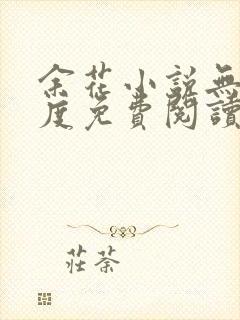 余花小說無
度免費閱讀
莊荼